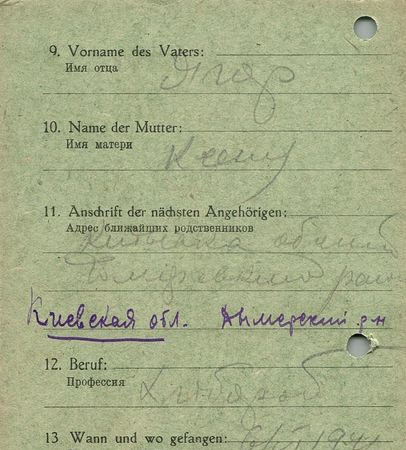 9. Vorname des Vaters:
Имя отца
Ягор
10. Name der Mutter:
Имя матери
11. Anschrift der nächsten Angehörigen:
Адрес ближайших родственников
Киевская обл. Дымерский р-н
12. Beruf:
Профессия
Хлибороб
13 Wann und wo gefangen:
1941